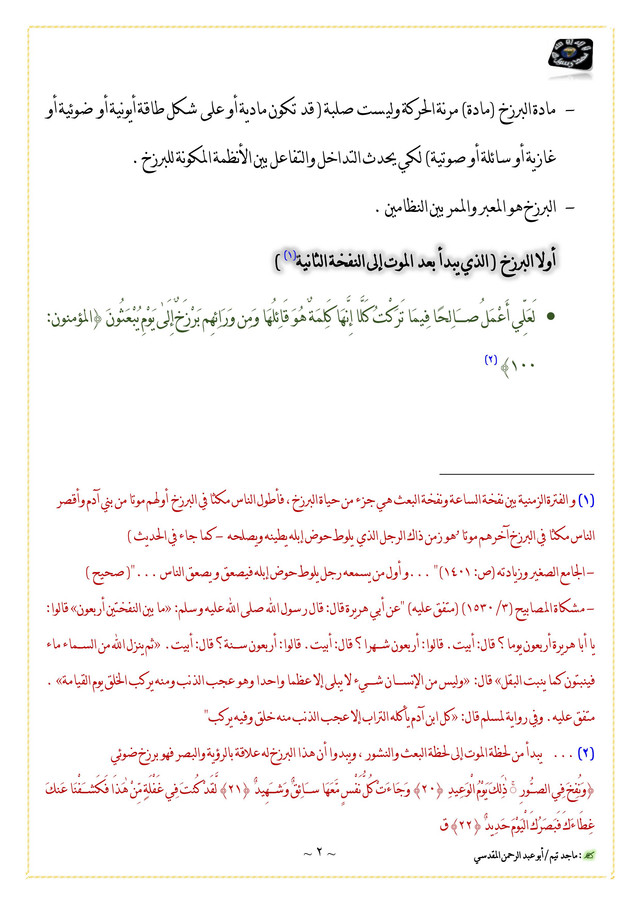 – مادة البرزخ (مادة) مرنة الحركة وليست صلبة ( قد تكون مادية أو على شكل طاقة أيونية أو ضوئية أو
غازية أو سائلة أو صوتية) لكي يحدث التداخل والتفاعل بين الأنظمة المكونة للبرزخ .
– البرزخ هو المعبر والممر بين النظامين .
أولا البرزخ ( الذي يبدأ بعد الموت إلى النفخة الثانية(١) )
• لَعَلِّي أَعْمَلُ صَـالِحًا فِيمَا تَرَكْتُ كَلَّا إِنَّهَا كَلِمَةٌ هُوَ قَائِلُهَا وَمِن وَرَائِهِم بَرْزَخٌ إِلَىٰ يَوْمِ يُبْعَثُونَ ﴿المؤمنون:
١٠٠﴾ (٢)
(١) و الفترة الزمنية بين نفخة الساعة ونفخة البعث هي جزء من حياة البرزخ ، فأطول الناس مكثا في البرزخ أولهم موتا من بني آدم وأقصر
الناس مكثا في البرزخ آخرهم موتا ’هو زمن ذاك الرجل الذي يلوط حوض إبله يطينه ويصلحه –كما جاء في الحديث )
– الجامع الصغير وزيادته (ص: ١٤٠١) " . . . و أول من يسمعه رجل يلوط حوض إبله فيصعق و يصعق الناس . . . "( صحيح )
– مشكاة المصابيح (٣/ ١٥٣٠) (متفق عليه) "عن أبي هريرة قال: قال رسول الله صلى الله عليه وسلم: «ما بين النفختين أربعون» قالوا:
يا أبا هريرة أربعون يوما ؟ قال: أبيت . قالوا: أربعون شـهرا ؟ قال: أبيت. قالوا: أربعون سـنة؟ قال: أبيت. «ثم ينزل الله من السـماء ماء
فينبتون كما ينبت البقل» قال: «وليس من الإنسـان شـيء لا يبلى إلا عظما واحدا وهو عجب الذنب ومنه يركب الخلق يوم القيامة» .
متفق عليه . وفي رواية لمسلم قال: «كل ابن آدم يأكله التراب إلا عجب الذنب منه خلق وفيه يركب"
(٢) . . . يبدأ من لحظة الموت إلى لحظة البعث والنشور ، ويبدوا أن هذا البرزخ له علاقة بالرؤية والبصر فهو برزخ ضوئي
﴿وَنُفِخَ فِي الصُّورِ ۚ ذَٰلِكَ يَوْمُ الْوَعِيدِ ﴿٢٠﴾ وَجَاءَتْ كُلُّ نَفْسٍ مَّعَهَا سَـائِقٌ وَشَـهِيدٌ ﴿٢١﴾ لَّقَدْ كُنتَ فِي غَفْلَةٍ مِّنْ هَٰذَا فَكَشَـفْنَا عَنكَ
غِطَاءَكَ فَبَصَرُكَ الْيَوْمَ حَدِيدٌ ﴿٢٢﴾ ق
: ماجد تيم / أبو عبد الرحمن المقدسي
~ ٢ ~